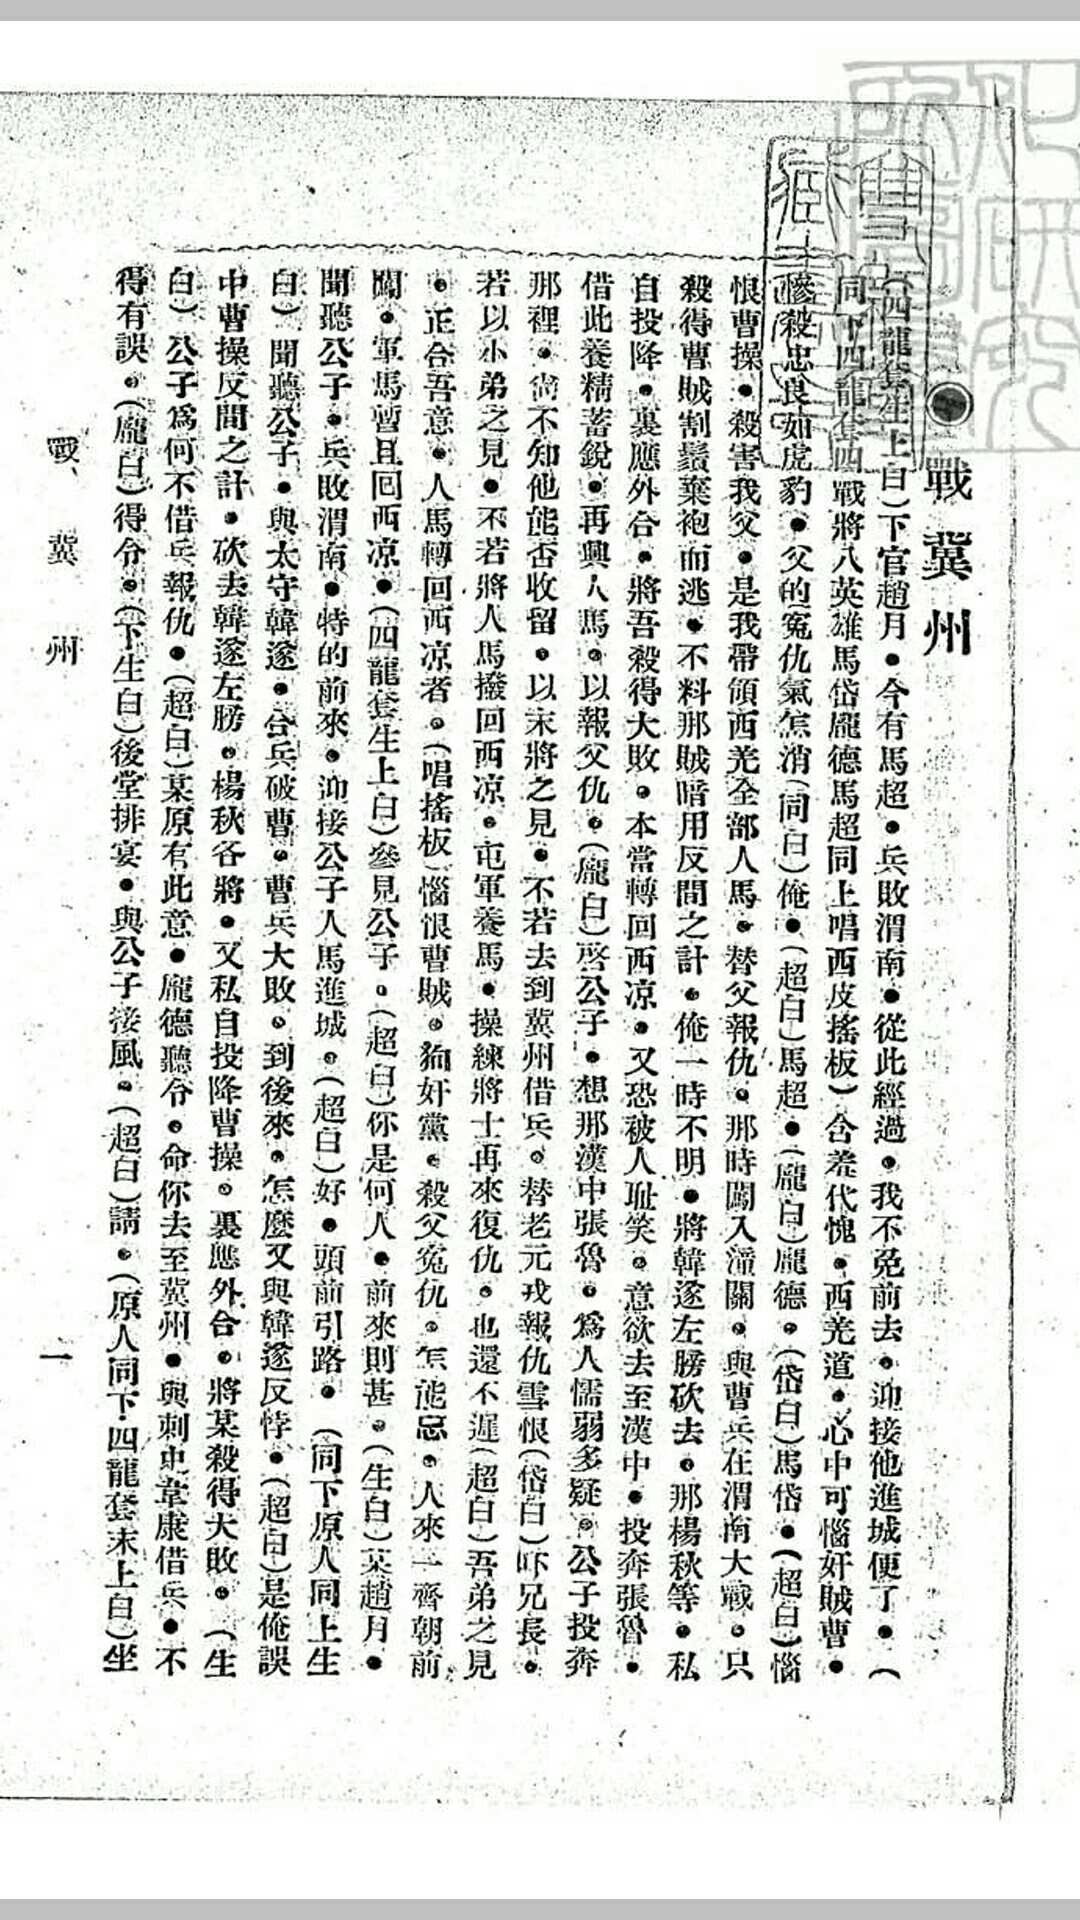 戰冀州
(四龍套生上白)下官趙月●今有馬超●兵敗渭南●從此經過●我不免前去●迎接他進城便了●(
同下四龍套四戰將八英雄馬岱龐德馬超同上唱西皮搖板)含羞代愧●西羌道●心中可惱奸賊曹●
慘殺忠良如虎豹●父的冤仇氣怎消(同白)俺●(超白)馬超●(龐白)龐德●(岱白)馬岱●(超白)惱
恨曹操●殺害我父●是我帶領西羌全部人馬●替父報仇●那時闖入潼關●與曹兵在渭南大戰●只
殺得曹賊割鬚棄袍而逃●不料那賊暗用反間之計●俺一時不明●將韓遂左膀砍去●那楊秋等●私
自投降●裏應外合●將吾殺得大敗●本當轉回西凉●又恐被人耻笑●意欲去至漢中●投奔張魯●
借此養精蓄銳●再興人馬●以報父仇●(龐白)啓公子●想那漢中張魯●爲人懦弱多疑●公子投奔
那裡●尙不知他能否收留●以末將之見●不若去到冀州借兵●替老元戎報仇雪恨(岱白)吓兄長●
若以小弟之見●不若將人馬撥回西凉●屯軍養馬●操練將士再來復仇●也還不遲(超白)吾弟之見
●正合吾意●人馬轉回西凉者●(唱搖板)惱恨曹賊●狗奸黨●殺父冤仇●怎能忘●人來一齊朝前
闖●軍馬暫且回西凉●(四龍套生上白)參見公子●(超白)你是何人●前來則甚●(生白)某趙月●
聞聽公子●兵敗渭南●特的前來●迎接公子人馬進城●(超白)好●頭前引路●(同下原人同上生
白)聞聽公子●與太守韓遂●合兵破曹●曹兵大敗●到後來●怎麽又與韓遂反悖●(超白)是俺誤
中曹操反間之計●砍去韓遂左膀●楊秋各將●又私自投降曹操●裏應外合●將某殺得大敗●(生
白)公子爲何不借兵報仇●(超白)某原有此意●龐德聽令●命你去至冀州●與刺史韋康借兵●不
得有誤●(龐白)得令●(下生白)後堂排宴●與公子接風●(超白)請●(原人同下●四龍套末上白)坐
戰冀州
一